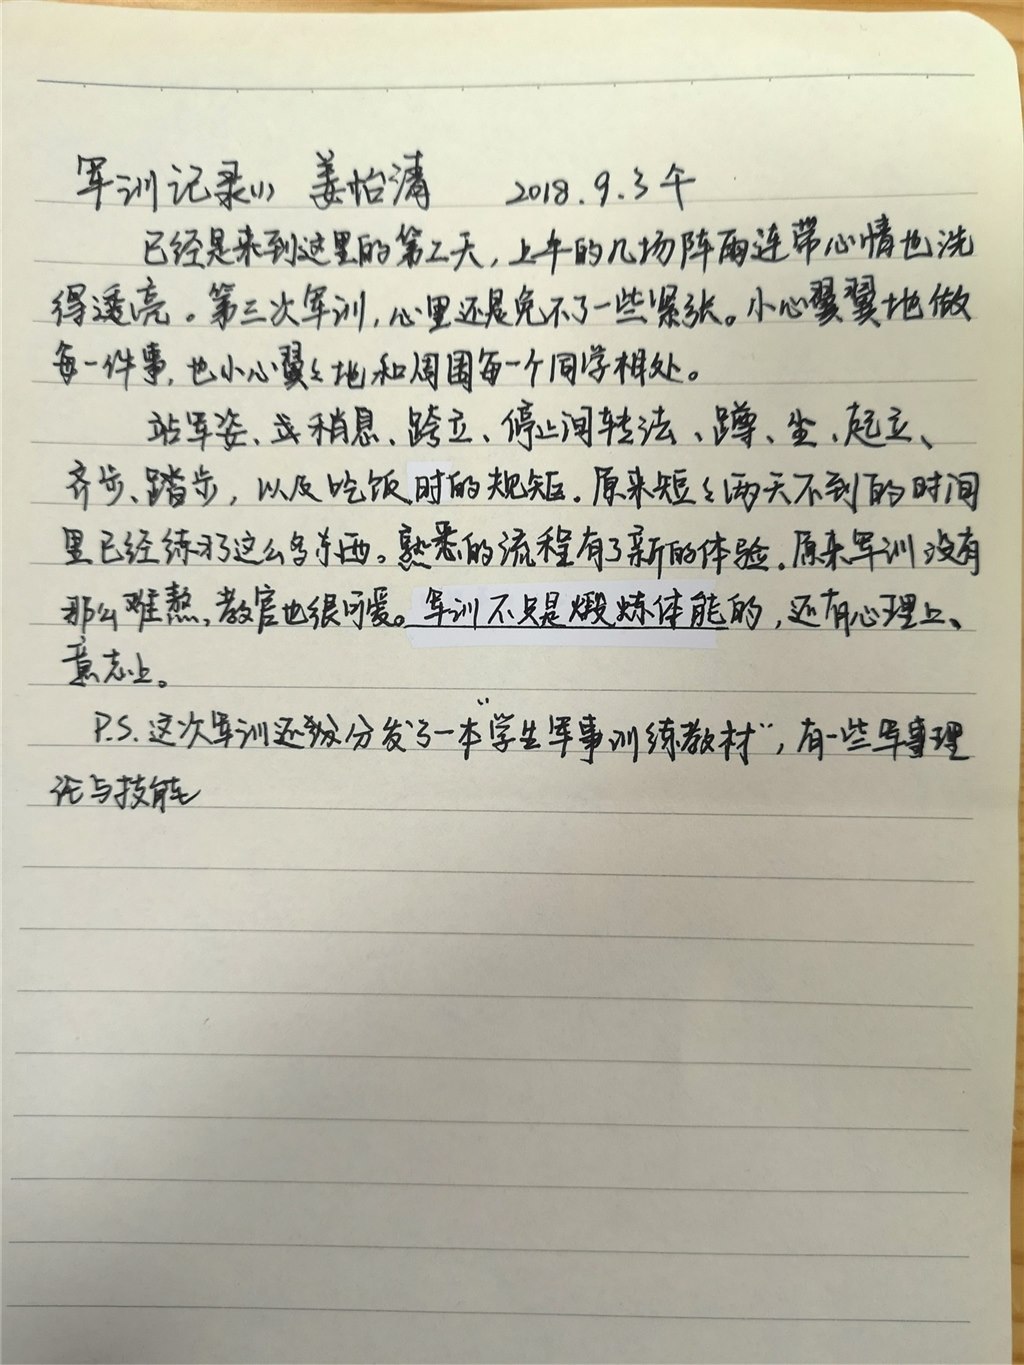 军训记录(1) 姜怡清 2018.9.3 午
已经是来到这里的第二天，上午的几场阵雨连带心情也洗
得透亮。第三次军训，心里还是免不了一些紧张。小心翼翼地做
每一件事，也小心翼々地和周围每一个同学相处。
站军姿、稍息、跨立、停止间转法、蹲、坐、起立、
齐步、踏步，以及吃饭时的规矩。原来短々两天不到的时间
里已经练习了这么多东西。熟悉的流程有了新的体验。原来军训没有
那么难熬，教官也很可爱。军训不只是煅炼体能的，还有心理上、
意志上。
P.S. 这次军训还分发了一本“学生军事训练教材”，有一些军事理
论与技能